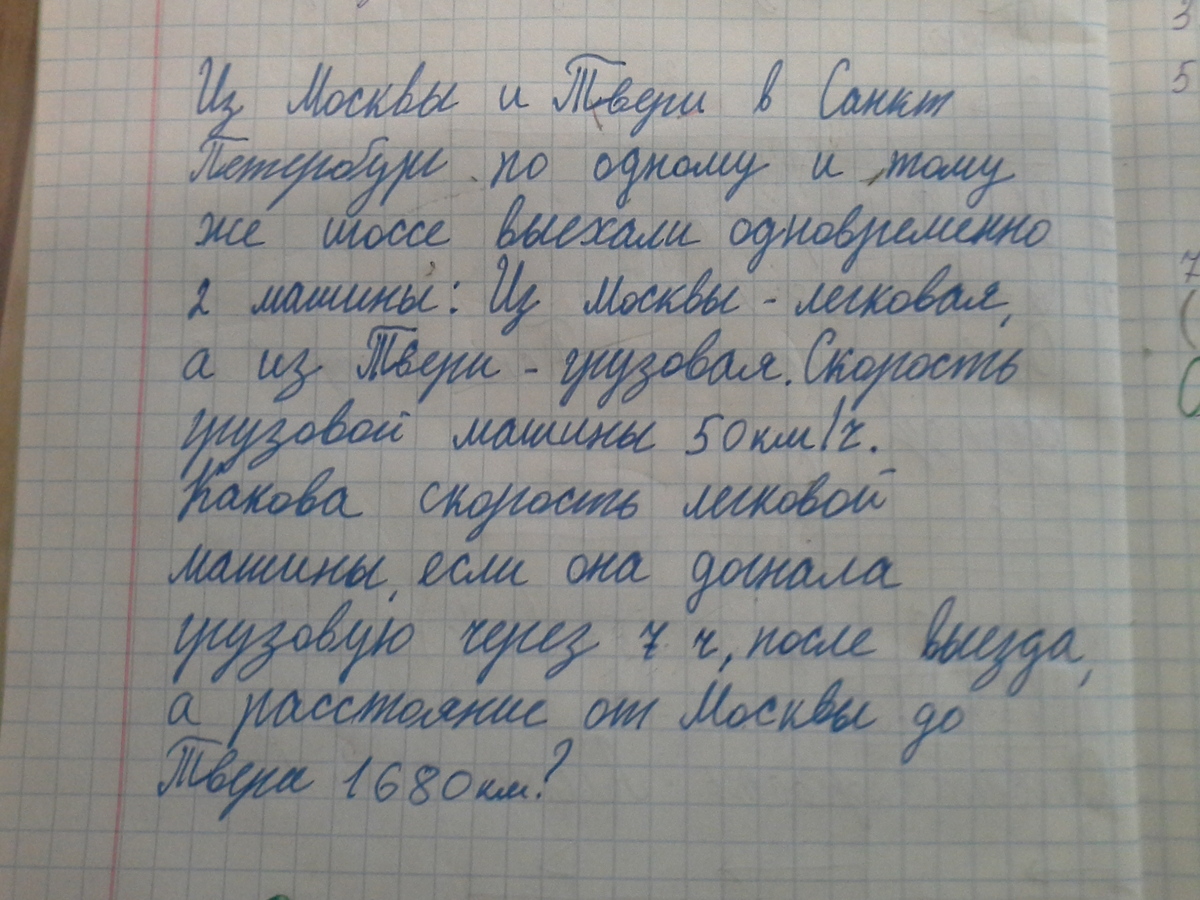 Из Москвы и Твери в Санкт
Петербург по одному и тому
же шоссе выехали одновременно
2 машины: Из Москвы - легковая,
а из Твери - грузовая. Скорость
грузовой машины 50км/ч.
Какова скорость легковой
машины, если она догнала
грузовую через 7 ч, после выезда,
а расстояние от Москвы до
Твери 1680км?
3
5
7